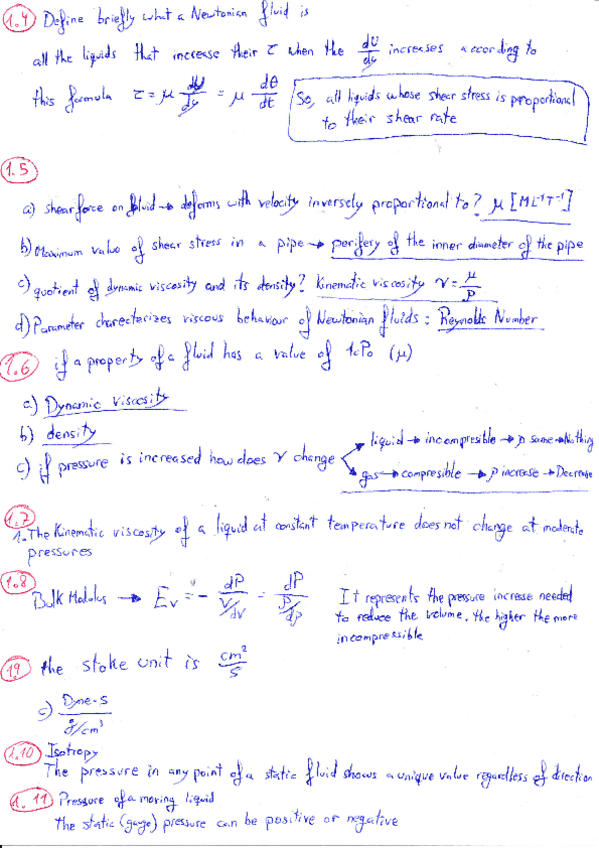 1.4 Define briefly what a Newtonian fluid is
all the liquids that increase their τ when the dU/dy increases according to
this formula τ = μ dU/dy = μ dθ/dt
So, all liquids whose shear stress is proportional
to their shear rate
1.5
a) shear force on fluid → deforms with velocity inversely proportional to? μ [ML⁻¹T⁻¹]
b) Maximum value of shear stress in a pipe → perifery of the inner diameter of the pipe
c) quotient of dynamic viscosity and its density? Kinematic viscosity ν = μ/ρ
d) Parameter charecterizes viscous behaviour of Newtonian fluids: Reynolds Number
1.6 if a property of a fluid has a value of (μ)
a) Dynamic viscosity
b) density
c) if pressure is increased how does ν change
liquid → incompresible → ρ same → Nothing
gas → compresible → ρ increase → Decrease
1.7
1. The Kinematic viscosity of a liquid at constant temperature does not change at moderate
pressures
1.8
Bulk Modulus → Ev = - dP / (V/dV) = dP / (ρ/dρ)
It represents the pressure increase needed
to reduce the volume, the higher the more
incompressible
1.9 the stoke unit is cm²/s
c) Dyne·s / g/cm³
1.10 Isotropy
The pressure in any point of a static fluid shows a unique value regardless of direction
1.11 Pressure of a moving liquid
the static (gauge) pressure can be positive or negative